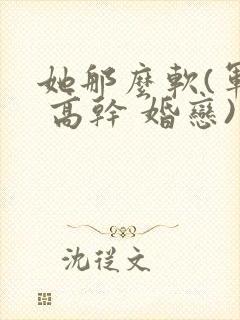 她那麼軟(軍
高幹 婚戀)
沈從文